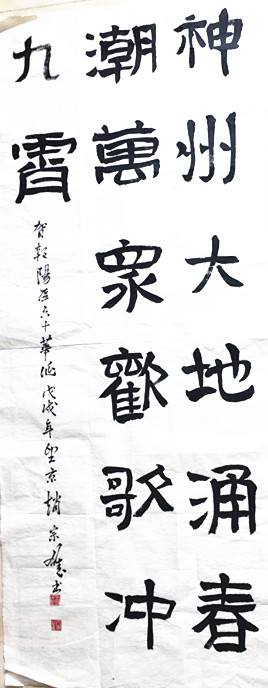 神州大地涌春
潮萬衆歡歌冲
九霄
賀朝陽区六十華诞戊戌年望京趙宗書